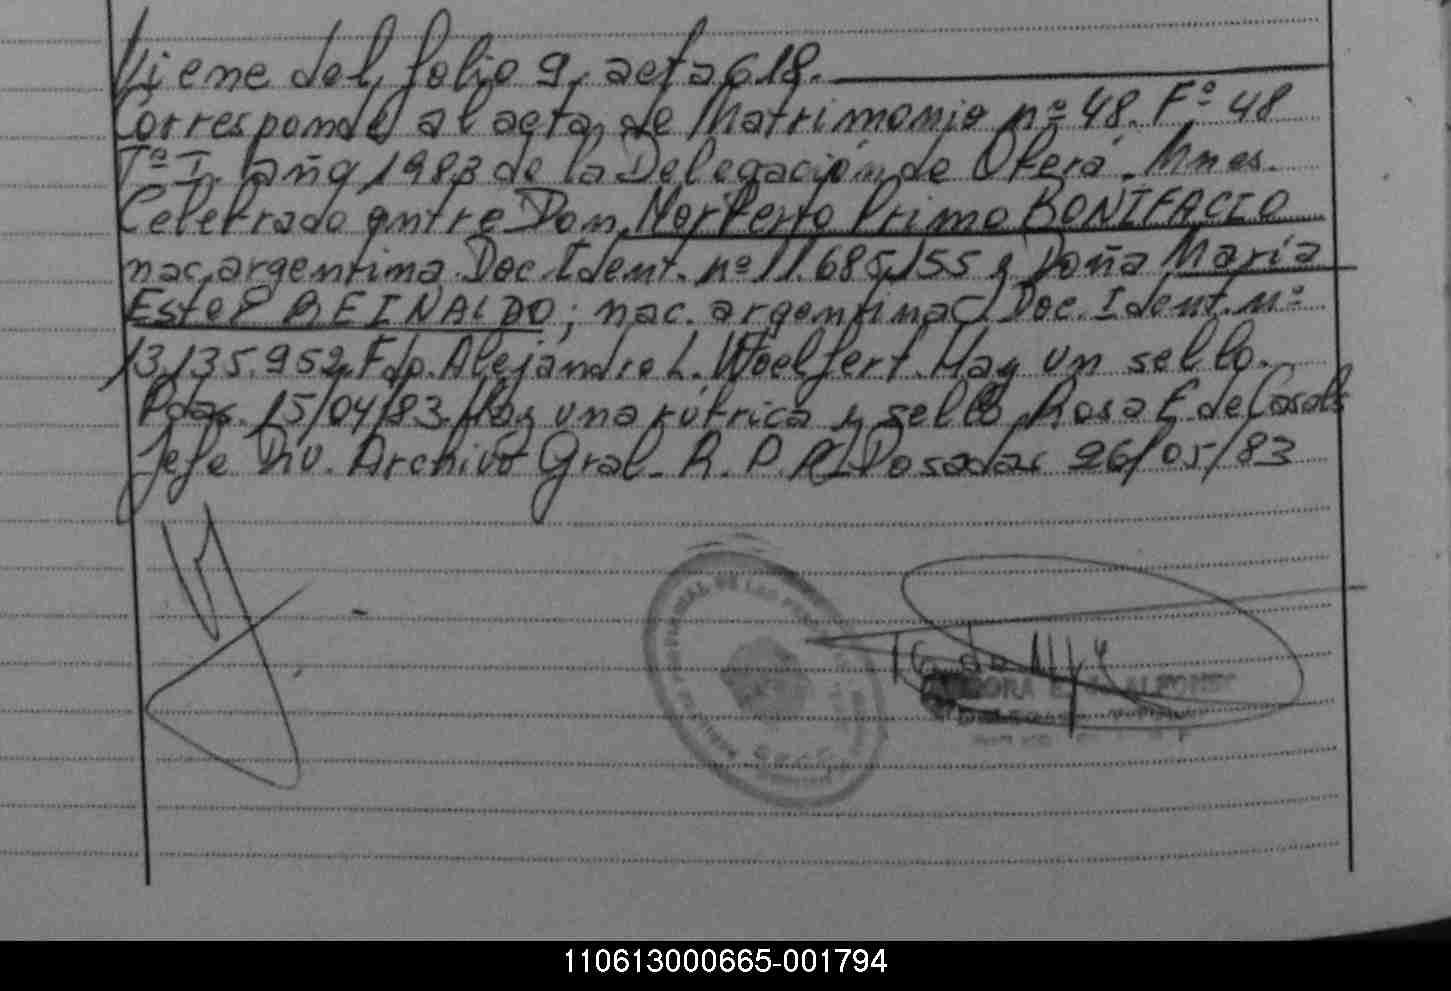 Viene del folio 9, acta 618.
Corresponde al acta de Matrimonio nº 48. Fº 48
Tº I. año 1983 de la Delegación de Oberá. Mnes.
Celebrado entre Don Norberto Primo BONIFACIO
nac. argentina. Doc. Ident. nº 11.685.155 y Doña María
Estel BEINALDO; nac. argentina Doc. Ident. Nº
13.135.952. Fdo. Alejandro L. Woelfert. Hay un sello.
Pdas. 15/04/83. Hay una rúbrica y sello Rosa E de Casals
Jefe Div. Archivo Gral. R. P. P. Posadas 26/05/83
110613000665-001794